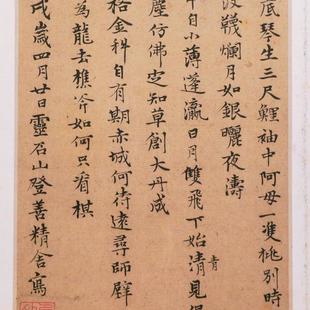 底琴生三尺鯉袖中阿母一雙桃別時
韈爛月如銀曬夜濤
自小薄蓬瀛日月雙飛下始清見
青
塵仿佛定知草創大丹成
格金科自有期赤城何待遠尋師
為龍去樵斧如何只看棋
戌歲四月廿日靈石山登善精舍寫